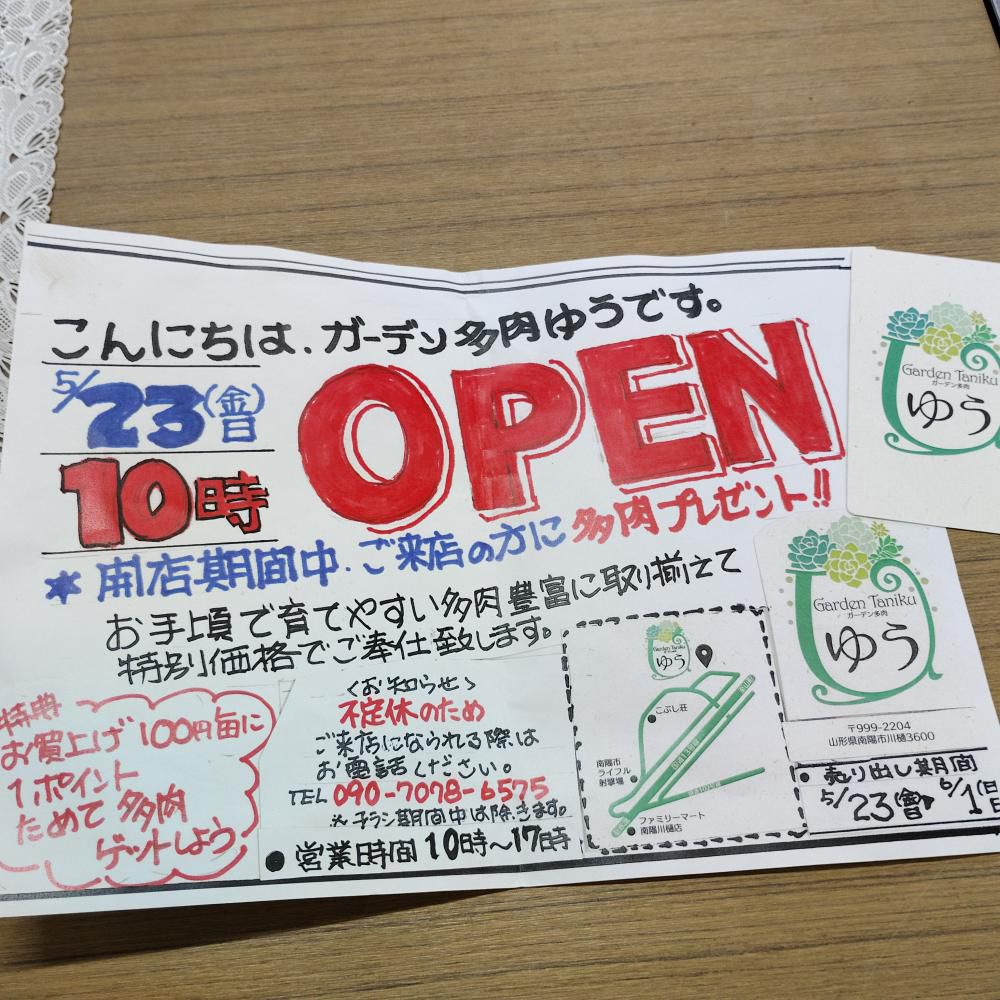 こんにちは、ガーデン多肉ゆうです。
5/23(金)日
10時
OPEN
＊開店期間中、ご来店の方に多肉プレゼント!!
お手頃で育てやすい多肉豊富に取り揃えて
特別価格でご奉仕致します。
特典
お買上げ100円毎に
1ポイント
ためて多肉
ゲットしよう
<お知らせ>
不定休のため
ご来店になられる際は
お電話ください。
TEL 090-7078-6575
※チラシ期間中は除きます。
●営業時間10時〜17時
Garden Taniku
ガーデン多肉
ゆう
こぶし荘
南陽市
ライフル
射撃場
国道13号線
ファミリーマート
南陽川樋店
Garden Taniku
ガーデン多肉
ゆう
Garden Taniku
ガーデン多肉
ゆう
〒999-2204
山形県南陽市川樋3600
●売り出し期間
5/23 6/1(日)